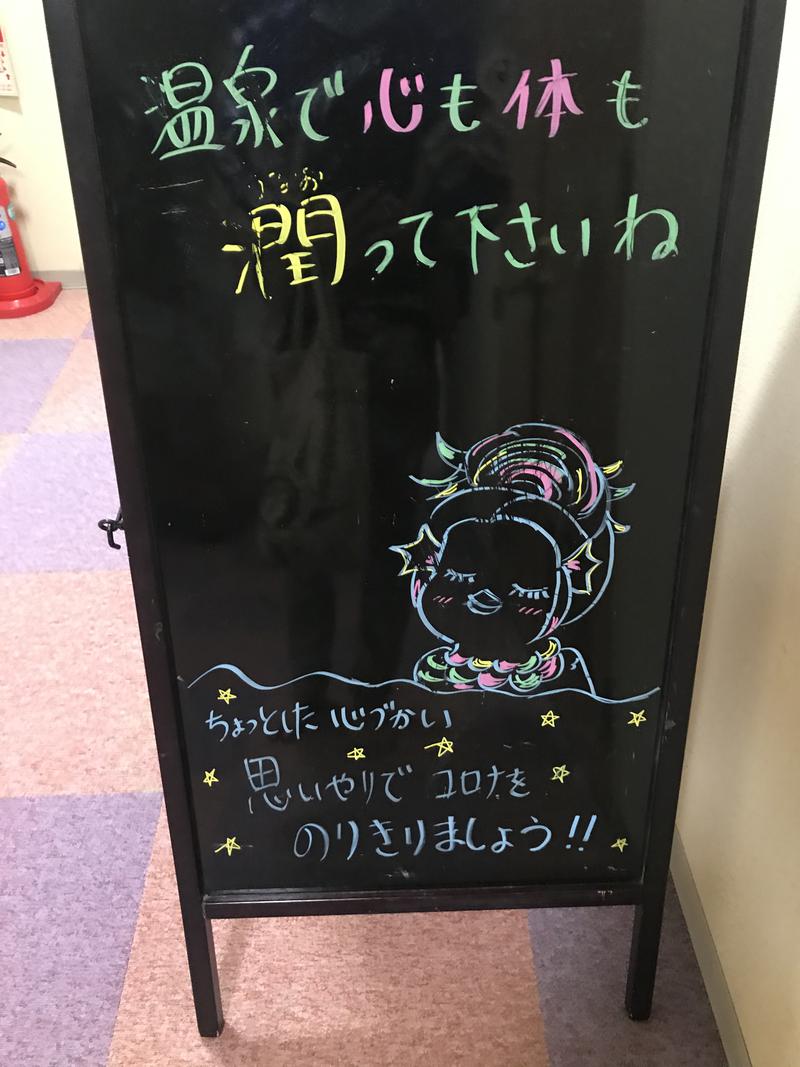 温泉で心も体も
潤って下さいね
ちょっとした心づかい
思いやりでコロナを
のりきりましょう!!